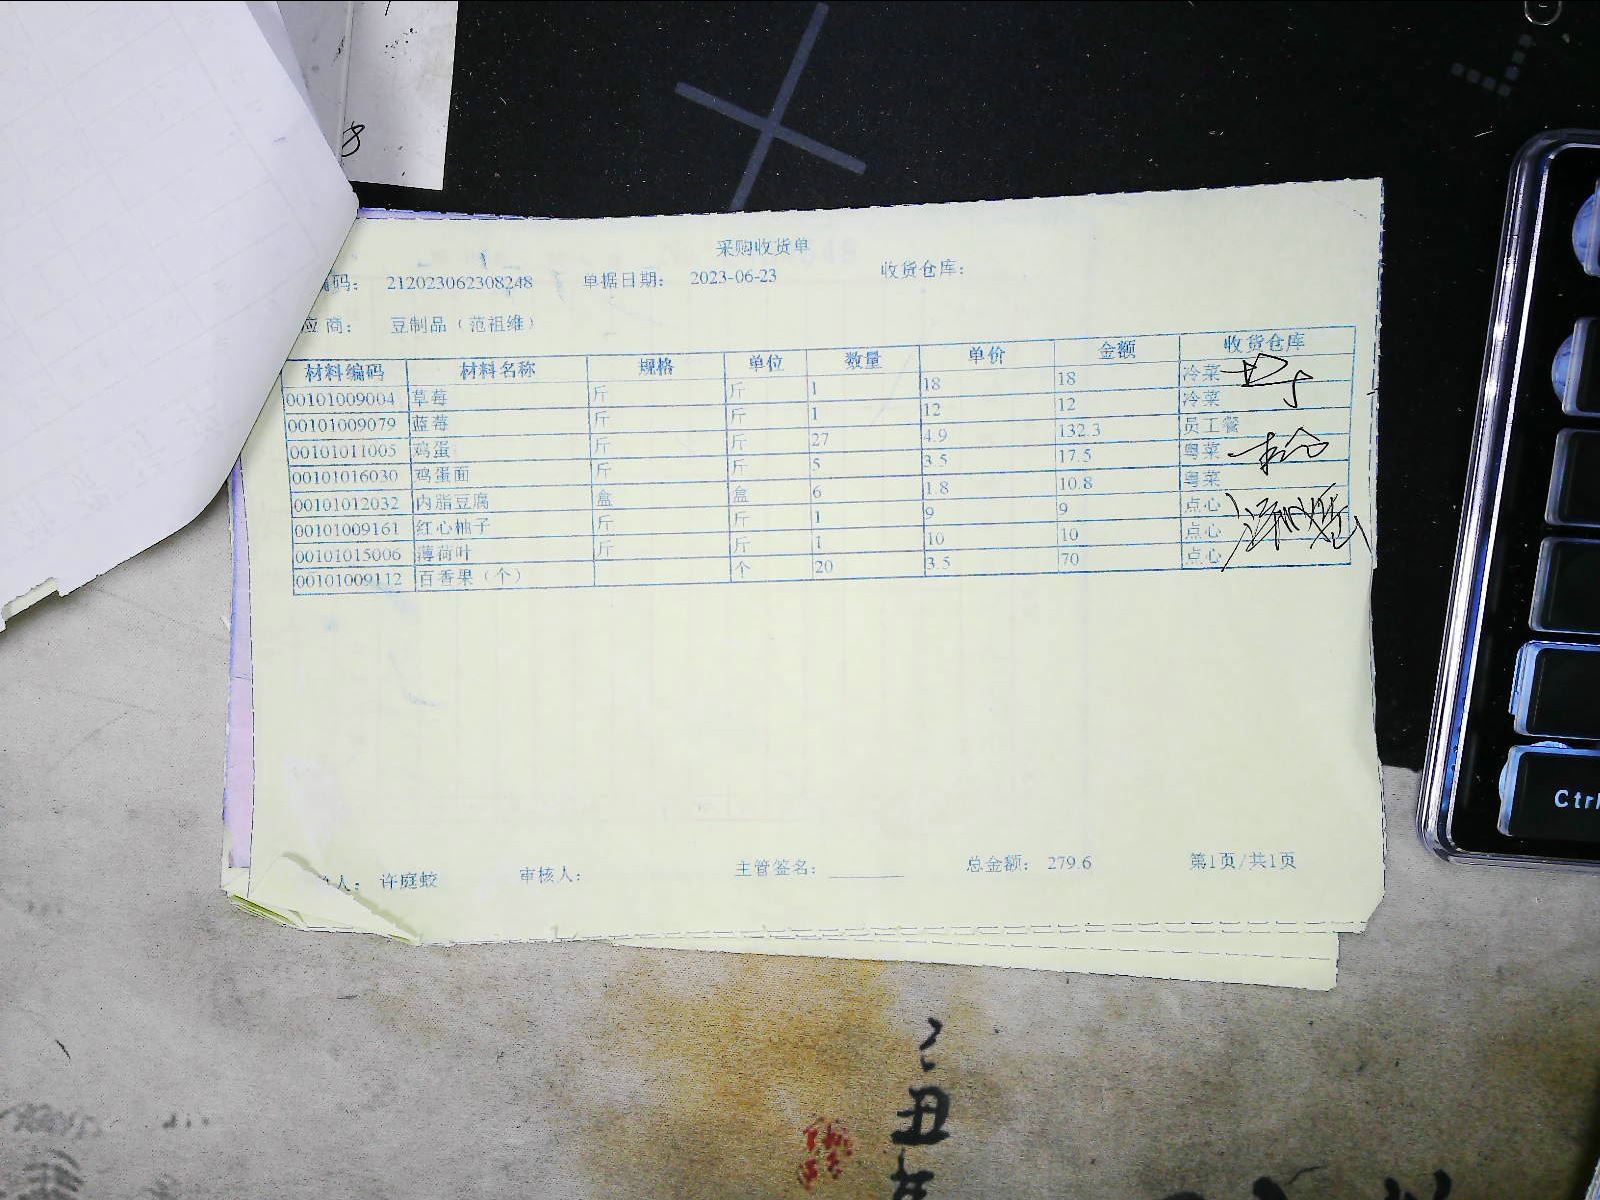 采购收货单
编码： 212023062308248 单据日期： 2023-06-23 收货仓库：
应商： 豆制品（范祖维）
材料编码 材料名称 规格 单位 数量 单价 金额 收货仓库
00101009004 草莓 斤 斤 1 18 18 冷菜
00101009079 蓝莓 斤 斤 1 12 12 冷菜
00101011005 鸡蛋 斤 斤 27 4.9 132.3 员工餐
00101016030 鸡蛋面 斤 斤 5 3.5 17.5 粤菜
00101012032 内脂豆腐 盒 盒 6 1.8 10.8 粤菜
00101009161 红心柚子 斤 斤 1 9 9 点心
00101015006 薄荷叶 斤 斤 1 10 10 点心
00101009112 百香果（个） 个 20 3.5 70 点心
人： 许庭蛟 审核人： 主管签名： 总金额： 279.6 第1页/共1页
Ctrl
丑